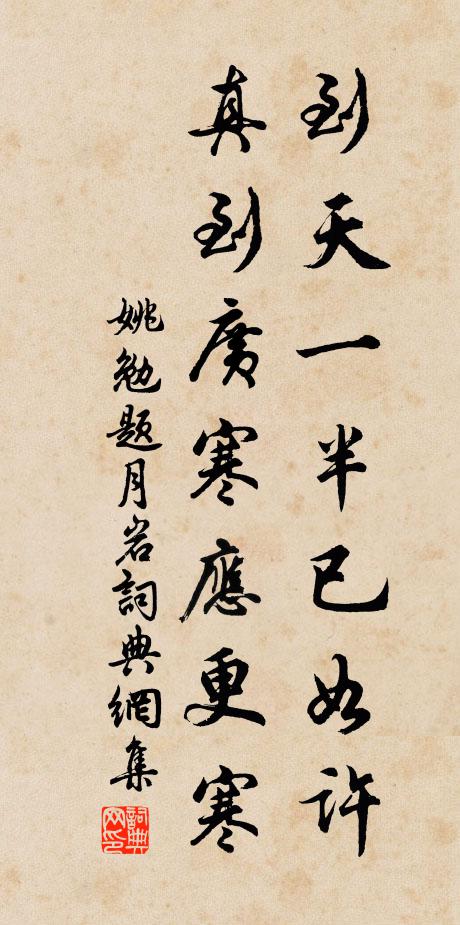 到天一半已如許
真到廣寒應更寒
姚勉題月岩詞典網集
詞典網印